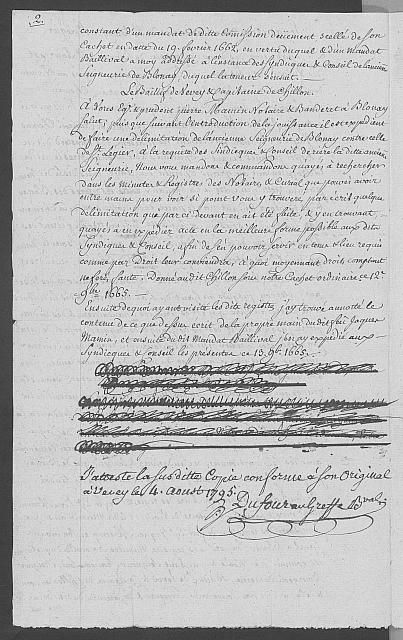 2.
constant d'un mandat de ditte Comission deuement scellé de son
Cachet en datte du 19. fevrier 1662, en vertu duquel & d'un Mandat
Baillival a moy addressé à l'instance des Syndiques & Conseil de la
Seigneurie de Blonay duquel la teneur s'ensuit.
Le Baillif de Vevey & Capitaine de Chillon.
A vous Eg. & prudent pierre Mamin Notaire & Banderet à Blonay
Salut,
de faire une délimitation de l'ancienne Seigneurie de Blonay contre celle
de St. Légier, à la requette des Sindicques & Conseil de rière la ditte ancienne
Seigneurie, Nous vous mandons & commandons qu'ayés à rechercher
dans les minutes & Registres des Notaires & Curial que pouvés avoir
entre mains pour voir si point vous y trouverés par écrit quelque
délimitation que par ci devant en ait été faite, & y en trouvant
qu'ayés à en expedier acte en la meilleure forme possible aux dits
Syndiques & Conseil, afin de s'en pouvoir servir en tous lieux requis
comme par Droit leur conviendra, à quoi moyennant droits comptent
ne soit faute. Donné au dit Chillon sous notre Cachet ordinaire ce 12e
9bre 1665. —
Ensuite de quoi ayant visité les dits registres j'ay trouvé annotté le
contenu de ce que dessus écrit de la propre main du dit feu Jaques
Mamin, et ensuitte du dit Mandat Baillival j'en ay expedié aux
Syndicques & Conseil les presentes ce 13. 9bre 1665. —
J'atteste la sus ditte Copie conforme à son Original
à Vevey le 4. Aoust 1795.
Dufour au Greffe Bval